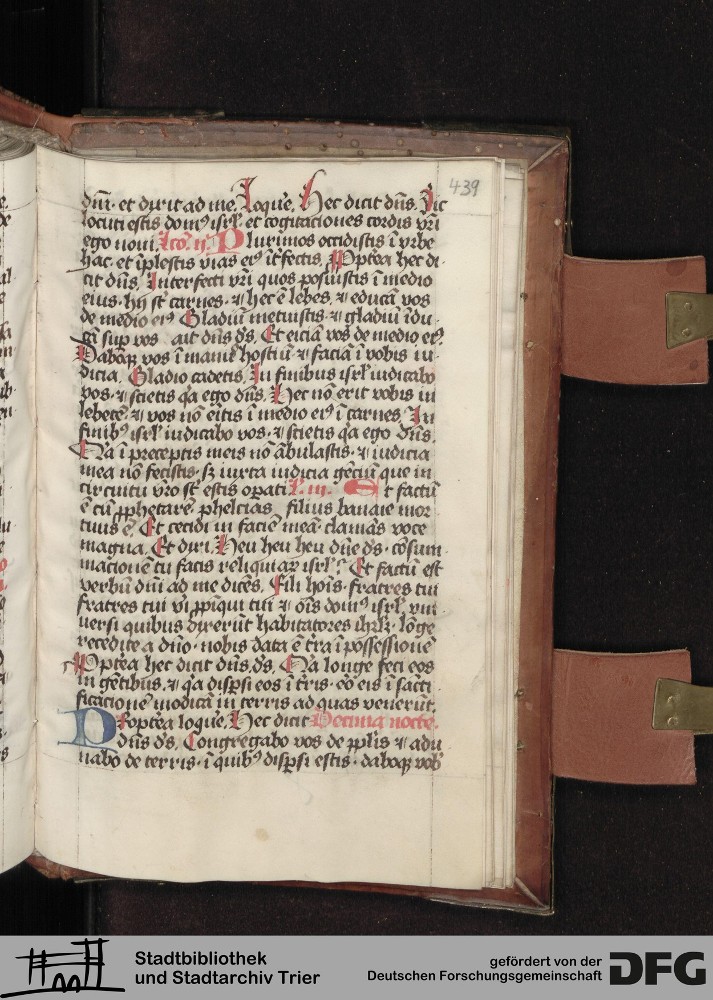 439
dn̄i · et dixit ad me. Loque. Hec dicit dn̄s. Sic
locuti estis domꝰ isrl̄. et cogitaciones cordis vr̄i
ego noui. lco. ij. Plurimos occidistis ī vrbe
hac. et īplestis vias eiꝰ īt̄fectis. Ꝓptea hec di-
cit dn̄s. Interfecti vr̄i quos posuistis ī medio
eius · hij st̄ carnes · ⁊ hec ē lebes. ⁊ educā vos
de medio eiꝰ Gladiū metuistis · ⁊ gladiū īdu-
cā sup vos ait dn̄s ds̄. Et eiciā vos de medio eiꝰ.
Daboꝙ vos ī manū hostiū · ⁊ faciā ī vobis iu-
dicia. Gladio cadetis. In finibus isrl̄ iudicabo
vos · ⁊ scietis qa ego dn̄s. Hec nō erit vobis in
lebetē · ⁊ vos nō eītis ī medio eiꝰ ī carnes. In
finibꝰ isrl̄ iudicabo vos · ⁊ scietis qa ego dn̄s.
Qa ī preceptis meis nō ābulastis · ⁊ iudicia
mea nō fecistis · sꝫ iuxta iudicia gēciū que in
circuitu vr̄o st̄ estis opati L. iij. Et factū
ē cū ꝓphetarē pheltias filius banaie mor
tuus ē. Et cecidi in faciē meā clamās voce
magna. Et dixi. Heu heu heu dn̄e ds̄ · cōsum-
macionē tu facis reliquiaꝝ isrl̄? Et factū est
verbū dn̄i ad me dicēs. Fili hoīs · fratres tui
fratres tui vi ꝓpīqui tui ⁊ oīs domꝰ isrl̄ vni-
uersi quibus dixerūt habitatores ihrlꝫ · lōge
recedite a dn̄o · nobis data ē tr̄a ī possessionē
Ꝓptea hec dicit dn̄s ds̄. Qa longe feci eos
in gētibus · ⁊ qa dispsi eos ī tr̄is · eō eis ī sācti-
ficacionē modicā in terris ad quas venerūt.
Propt̄ea loque. Hec dicit Decima nocte.
dn̄s ds̄. Congregabo vos de pplīs ⁊ adu
nabo de terris · ī quibꝰ dispsi estis · daboꝙ vob̄
Stadtbibliothek
und Stadtarchiv Trier
gefördert von der
Deutschen Forschungsgemeinschaft
DFG